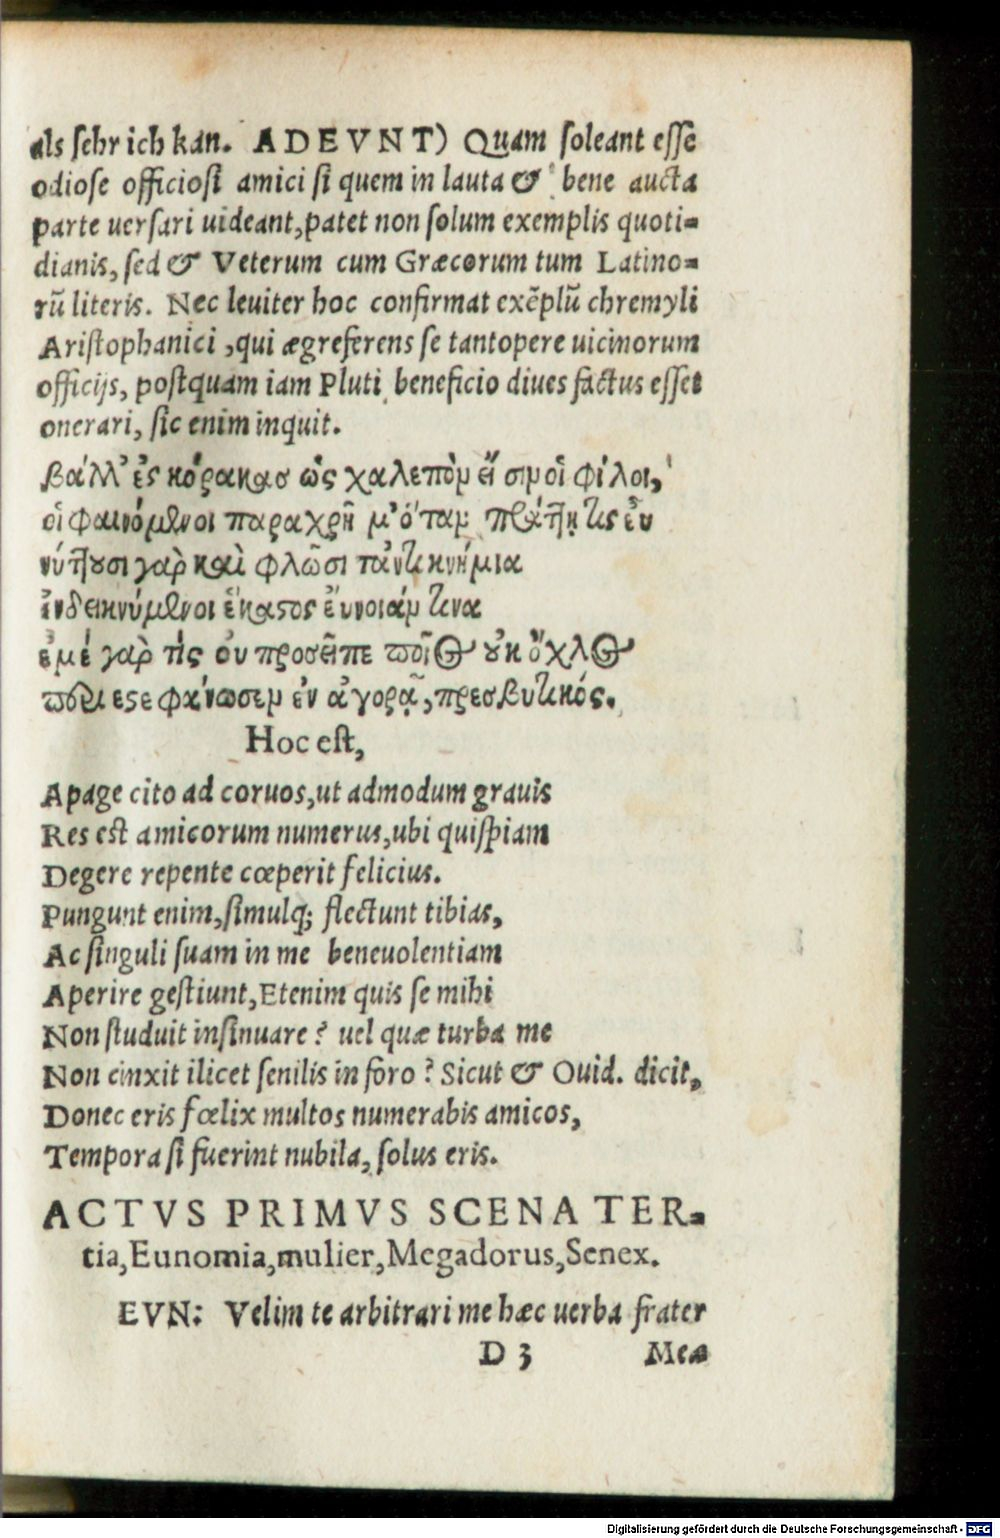 als sehr ich kan. ADEVNT) Quam soleant esse
odiose officiosi amici si quem in lauta & bene aucta
parte uersari uideant, patet non solum exemplis quoti-
dianis, sed & Veterum cum Græcorum tum Latino-
rũ literis. Nec leuiter hoc confirmat exẽplũ chremyli
Aristophanici, qui ægreferens se tantopere uicinorum
officijs, postquam iam Pluti beneficio diues factus esset
onerari, sic enim inquit.
βάλλ' ἐς κόρακασ ὡς χαλεπὸμ εἴ σιμοἱ φίλοι,
οἱ φαινόμενοι παραχρῆμ' ὅταμ πράττῃ τις ἐυ
νύττουσι γαρ καὶ φλῶσι τἀντικνήμια
ἐνδεικνύμενοι ἕκαστος ἔυνοιάμ τινα
ἐμέ γαρ τίς ου προσεῖπε ποῖος ουκ ὄχλος
περιεστεφάνωσεμ ἐν ἀγορᾷ, πρεσβυτικός.
Hoc est,
Apage cito ad coruos, ut admodum grauis
Res est amicorum numerus, ubi quispiam
Degere repente cœperit felicius.
Pungunt enim, simulq; flectunt tibias,
Ac singuli suam in me beneuolentiam
Aperire gestiunt, Etenim quis se mihi
Non studuit insinuare? uel quæ turba me
Non cinxit ilicet senilis in foro? Sicut & Ouid. dicit,
Donec eris fœlix multos numerabis amicos,
Tempora si fuerint nubila, solus eris.
ACTVS PRIMVS SCENA TER-
tia, Eunomia, mulier, Megadorus, Senex.
EVN: Velim te arbitrari me hæc uerba frater
D 3 Mea
Digitalisierung gefördert durch die Deutsche Forschungsgemeinschaft - DFG